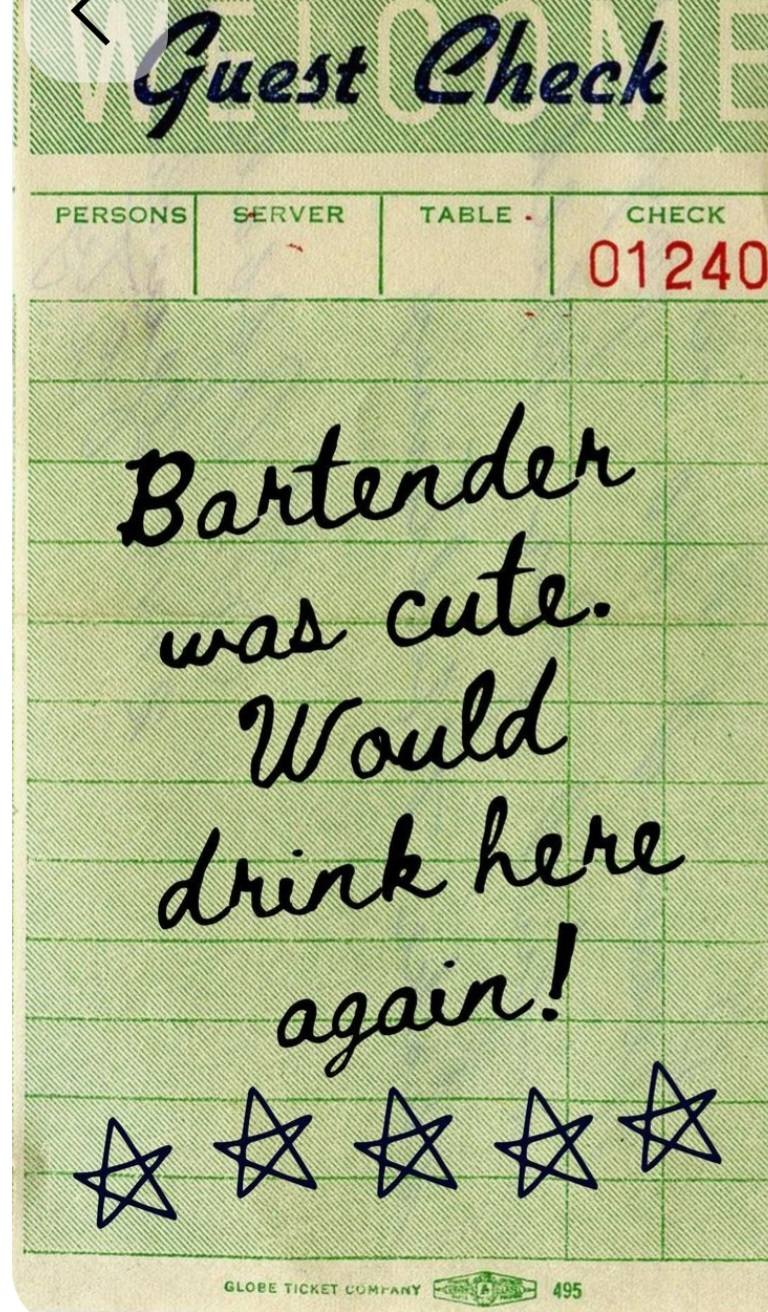 WELCOME
Guest Check
PERSONS SERVER TABLE CHECK
01240
Bartender
was cute.
Would
drink here
again!
GLOBE TICKET COMPANY 495